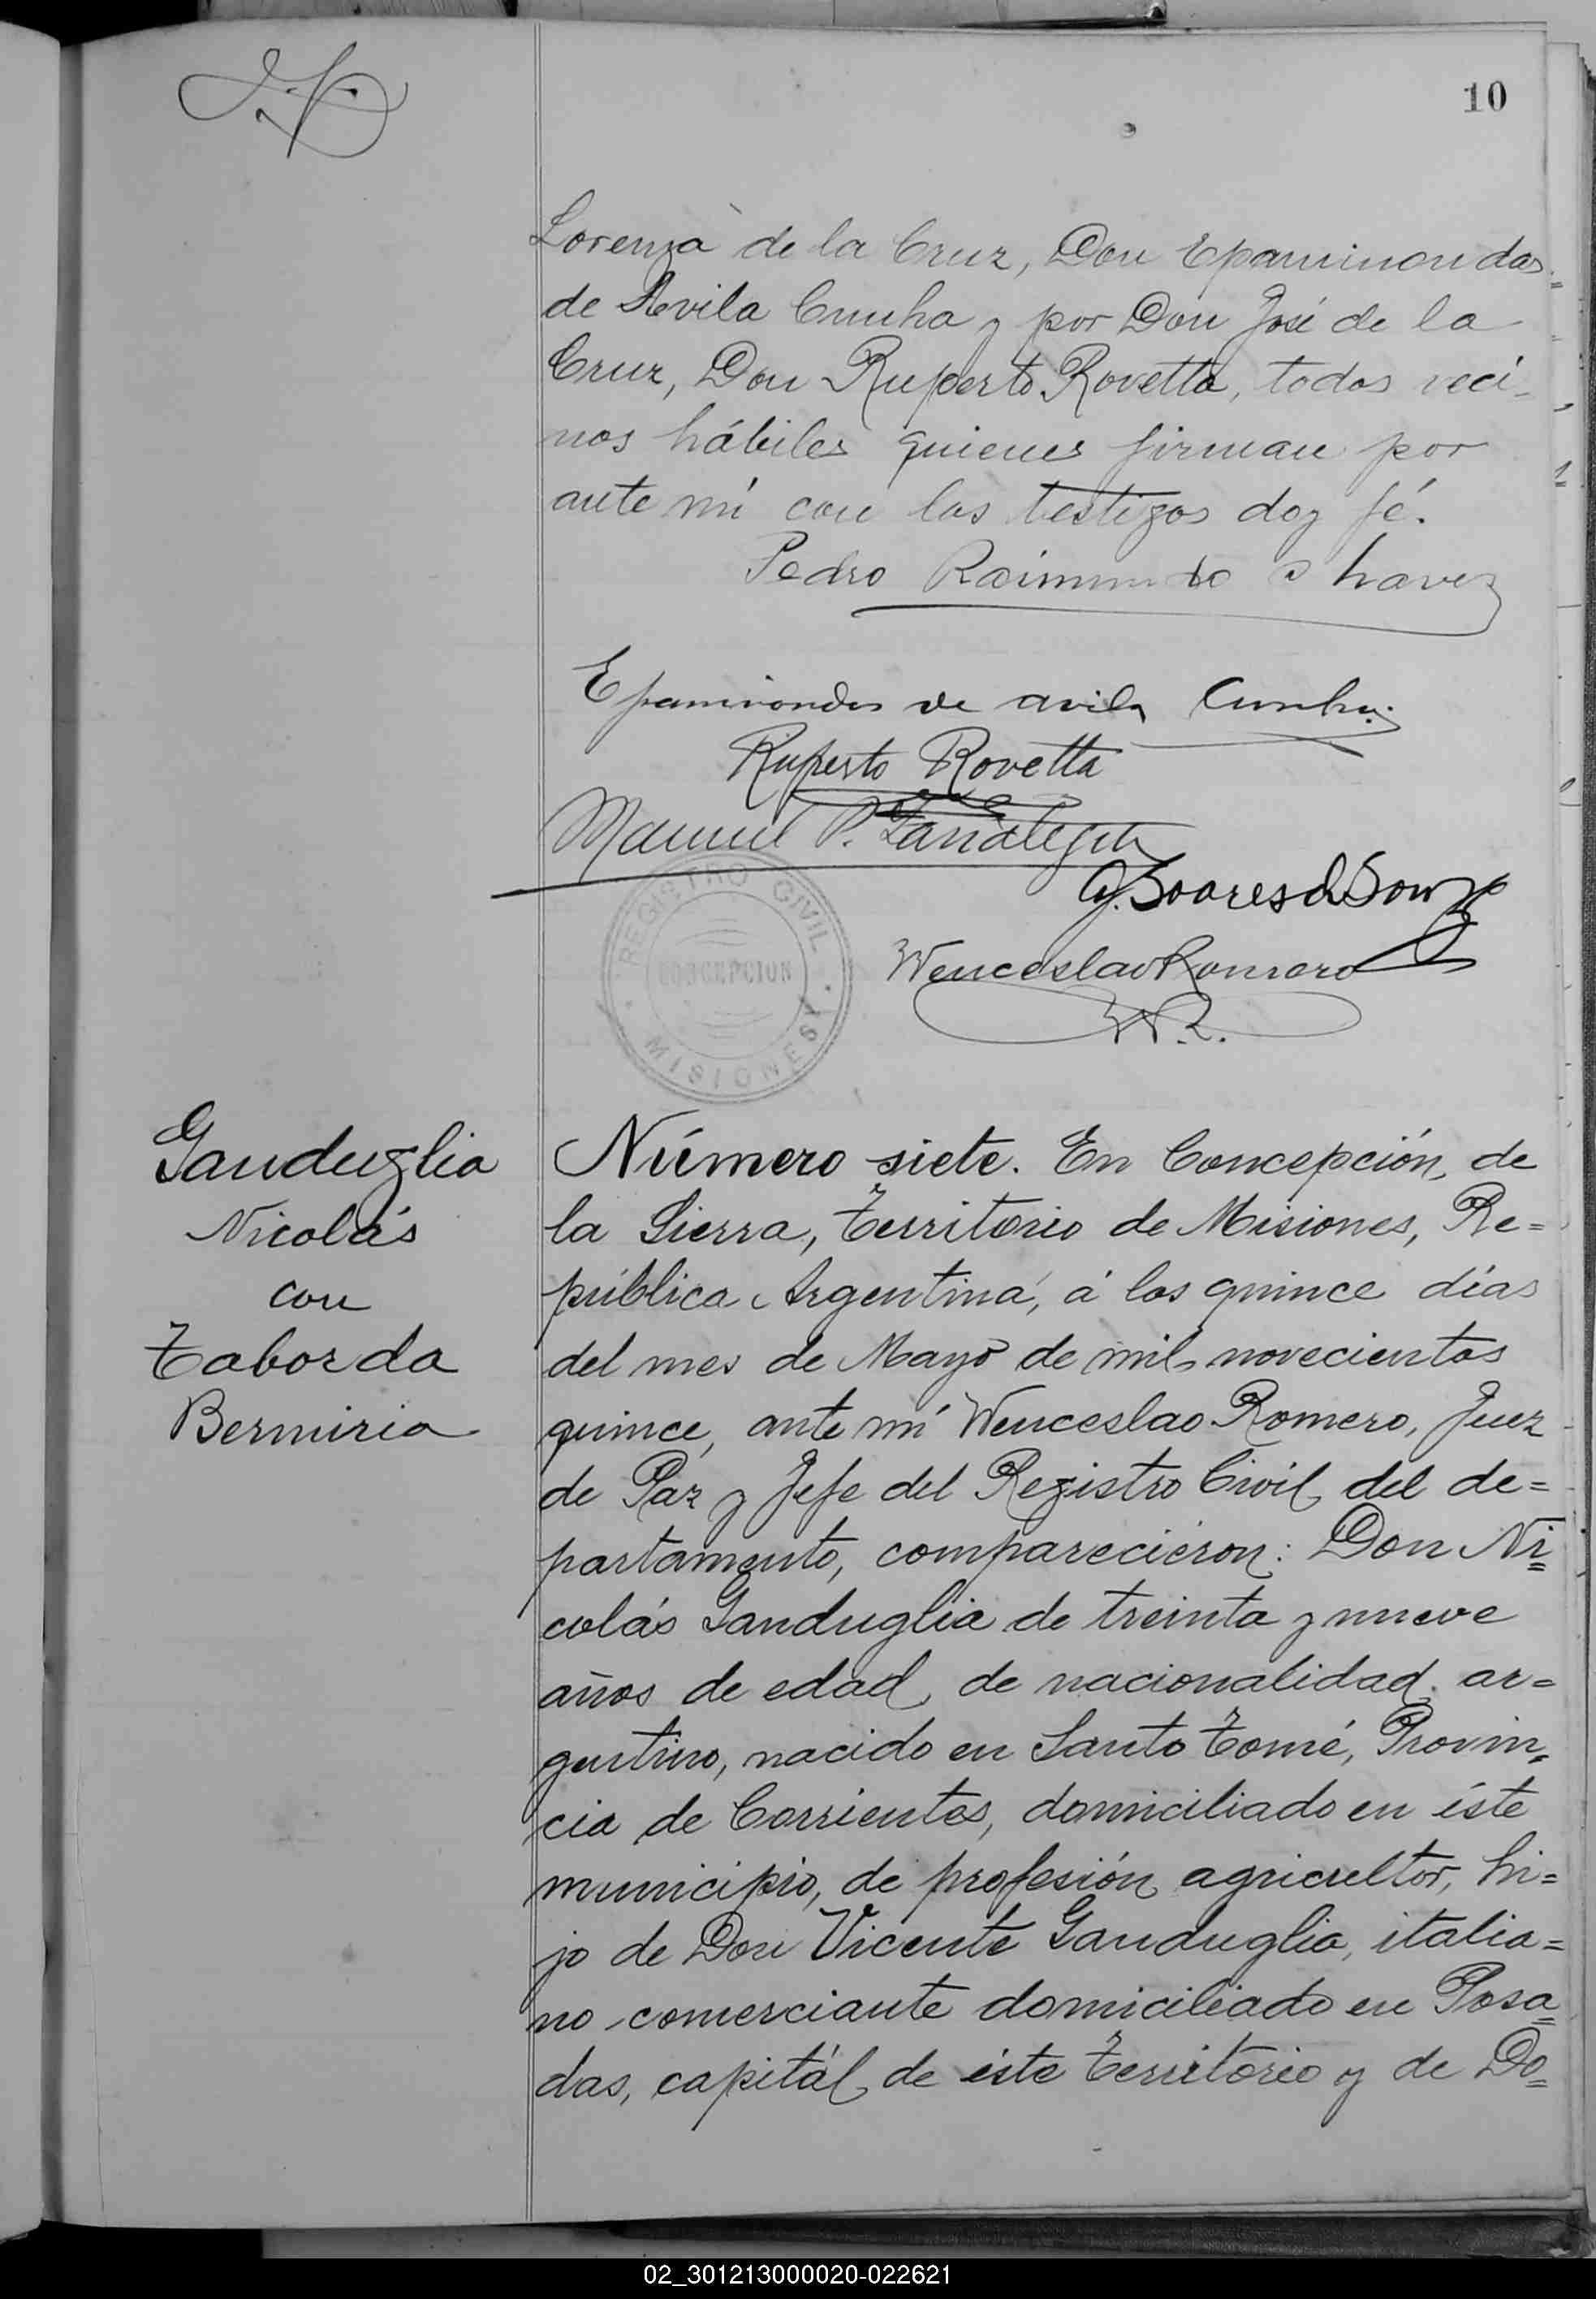 10
Lorenza de la Cruz, Don Epaminondas
de Avila Cunha y por Don José de la
Cruz, Don Ruperto Rovetta, todos veci-
nos hábiles quienes firman por
ante mí con los testigos doy fé.
Pedro Raimundo Chaves
Epaminondas de avila Cunha
Ruperto Rovetta
Manuel P.
Soares de Souza
Wenceslao Romero
W.R.
REGISTRO CIVIL
CONCEPCION
MISIONES
Ganduglia
Nicolás
con
Taborda
Bermiria
Número siete. En Concepción de
la Sierra, Territorio de Misiones, Re=
pública Argentina, á los quince días
del mes de Mayo de mil novecientos
quince, ante mí Wenceslao Romero, Juez
de Paz y Jefe del Registro Civil del de=
partamento, compareciéron: Don Ni=
colás Ganduglia de treinta y nueve
años de edad, de nacionalidad ar=
gentino, nacido en Santo Tomé, Provin=
cia de Corrientes, domiciliado en éste
municipio, de profesión agricultor, hi=
jo de Don Vicente Ganduglia, italia=
no comerciante domiciliado en Posa=
das, capitál de éste Territorio y de Do=
02_301213000020-022621